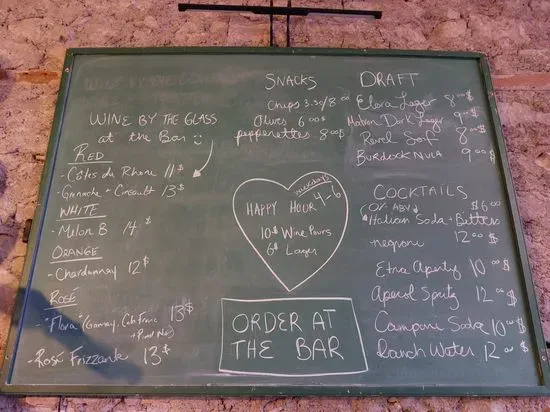 WINE BY THE GLASS
at the Bar
RED
- Côtes du Rhone 11$
- Grenache + Cinsault 13$
WHITE
- Melon B 14$
ORANGE
- Chardonnay 12$
ROSÉ
- "Flora" (Gamay, Cab Franc 13$
+ Pinot Noir)
- Rosé Frizzante 13$
SNACKS
Chips 3.50/8.00
Olives 6.00$
pepperettes 8.00$
weekdays
HAPPY HOUR 4-6
10$ Wine Pours
6$ Lager
ORDER AT
THE BAR
DRAFT
Elora Lager 8.00$
Matron Dark Lager 9.00$
Revel 8.00$
BURDOCK 9.00$
COCKTAILS
0% ABV $6.00
Italian Soda + Bitters
negroni 12.00$
Etna Aperitif 10.00$
Aperol Spritz 12.00$
Campari Soda 10.00$
Ranch Water 12.00$